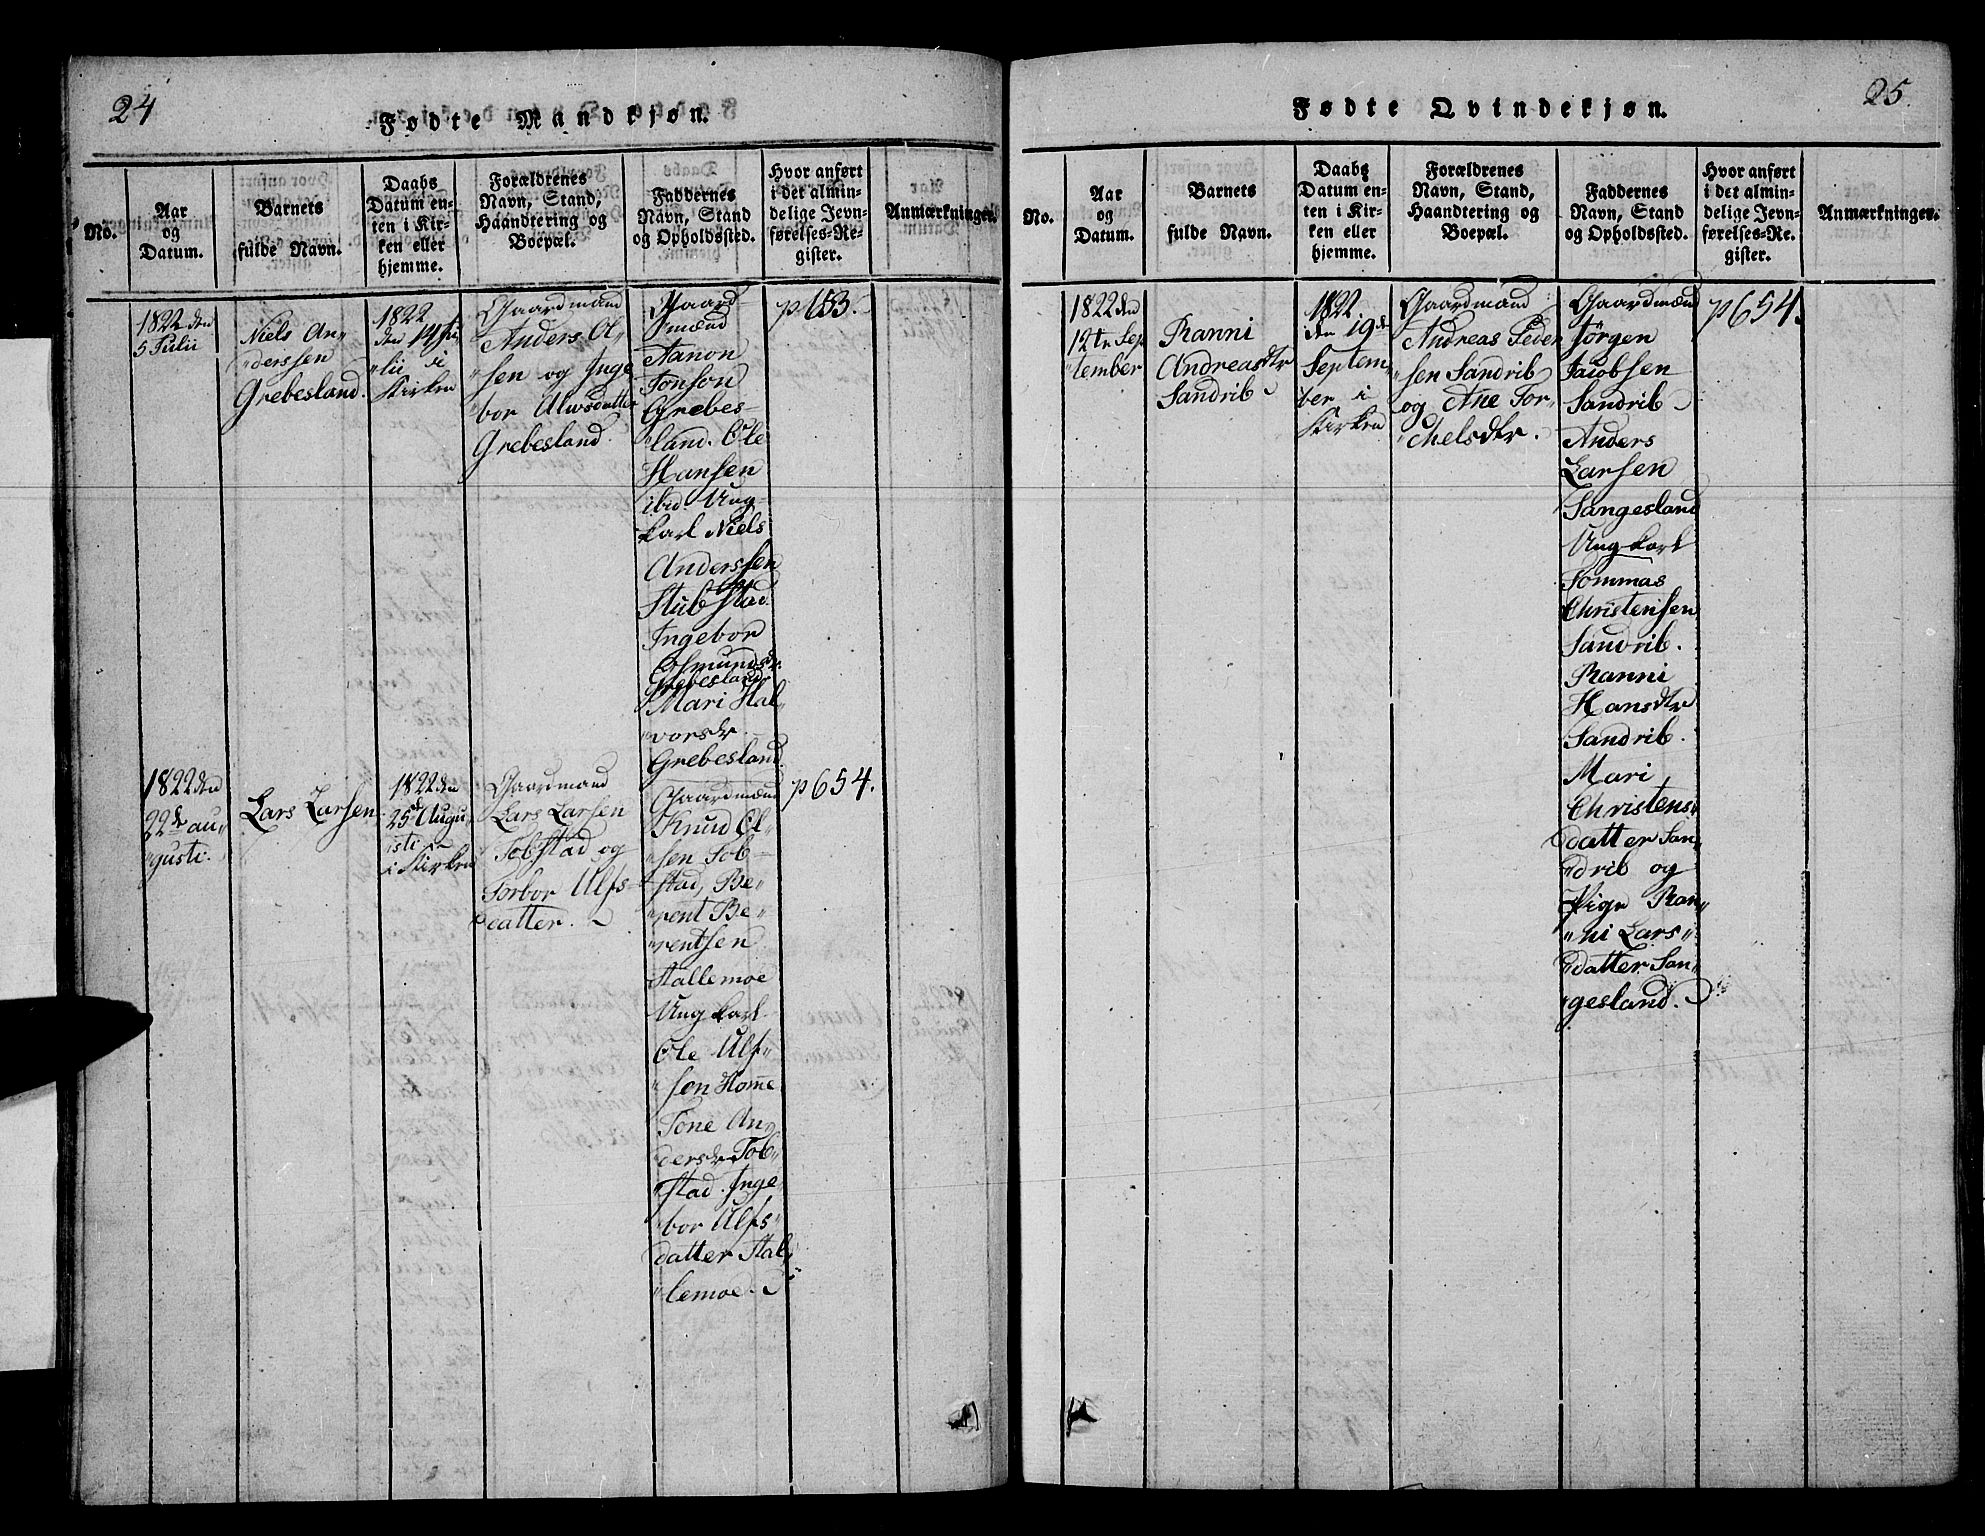 24
Fødte Mandkjøn.
No.
Aar
og
Datum.
Barnets
fulde Navn.
Daabs
Datum en-
ten i Kir-
ken eller
hjemme.
Forældrenes
Navn, Stand,
Haandtering og
Boepæl.
Faddernes
Navn, Stand
og Opholdssted.
Hvor anført
i det almin-
delige Jevn-
førelses-Re-
gister.
Anmærkninger.
1822 den
5 Julii
Niels An-
"derssen
Grebesland.
1822
den 14 Ju
"lii i
Kirken
Gaardmand
Anders Ol-
"sen og Inge
"bor Ulwsdatter
Grebesland.
Gaard-
mænd
Tanon
Tonson
Grebes-
"land. Ole
Hansen
ibid Ung-
karl Niels
Anderssen
Stubstad
Ingebor
Osmundsdr.
Grebesland
Mari Hal-
"vorsdr.
Grebesland.
p 653.
1822 den
22de au-
"gusti.
Lars Larsen.
1822 den
25d Augu-
"isti
i Kirken
Gaardmand
Lars Larsen
Tobstad og
Torbor Ulfs-
datter.
Gaardmænd
Knud Ol-
"sen Tob-
stad, Be-
"rent Be-
"rentsen
Stallemoe
Ung karl
Ole Ulf-
"sen Home
Tone An-
dersdr Tob-
stad. Inge-
"bor Ulfs-
datter Stal-
"lemoe.
p 654.
25.
Fødte Qvindekjøn.
No.
Aar
og
Datum.
Barnets
fulde Navn.
Daabs
Datum en-
ten i Kir-
ken eller
hjemme.
Forældrenes
Navn, Stand,
Haandtering og
Boepæl.
Faddernes
Navn, Stand
og Opholdssted.
Hvor anført
i det almin-
delige Jevn-
førelses-Re-
gister.
Anmærkninger.
1822 den
12te Sep
"tember
Ranni
Andreasdtr
Sandrib
1822
den 19de
Septem-
ber i
Kirken
Gaardmand
Andreas Peder
"sen Sandrib
og Ane Tor-
"chelsdtr.
Gaardmænd
Jørgen
Jacobsen
Sandrib
Anders
Larsen
Sangesland
Ung karl
Tommas
Christensen
Sandrib.
Ranni
Hansdtr
Sandrib.
Mari
Christens
datter San-
"drib og
Pige Ran-
"ni Lars-
"datter San-
"gesland.
p 654.